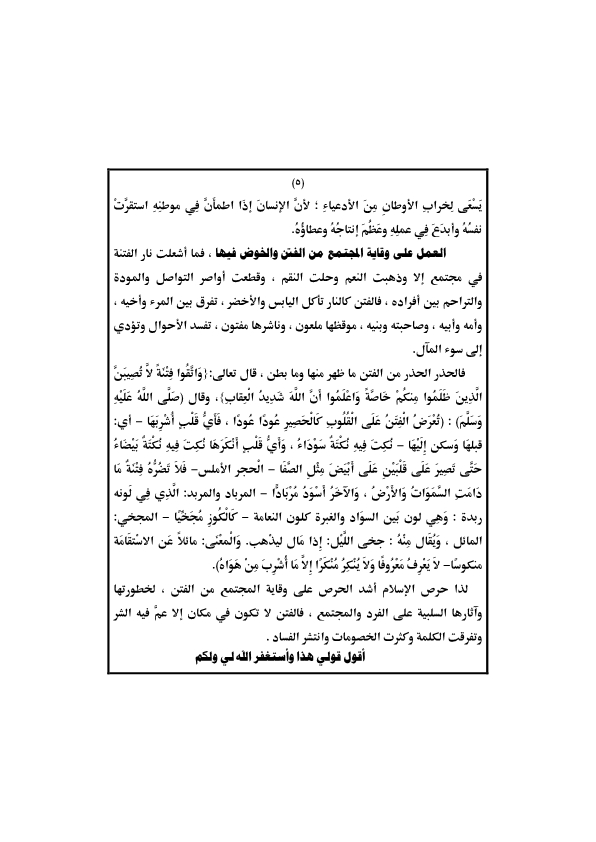 (٥)
يَسْعَى لِخرابِ الأوطانِ مِنَ الأدعياءِ ؛ لأنَّ الإنسانَ إذَا اطمأنَّ فِي موطنِهِ استقرَّتْ
نفسُهُ وأبدَعَ فِي عملِهِ وعَظُمَ إنتاجُهُ وعطاؤُهُ.
العمل على وقاية المجتمع من الفتن والخوض فيها ، فما أشعلت نار الفتنة
في مجتمع إلا وذهبت النعم وحلت النقم ، وقطعت أواصر التواصل والمودة
والتراحم بين أفراده ، فالفتن كالنار تأكل اليابس والأخضر ، تفرق بين المرء وأخيه ،
وأمه وأبيه ، وصاحبته وبنيه ، موقظها ملعون ، وناشرها مفتون ، تفسد الأحوال وتؤدي
إلى سوء المآل.
فالحذر الحذر من الفتن ما ظهر منها وما بطن ، قال تعالى:{وَاتَّقُوا فِتْنَةً لاَّ تُصِيبَنَّ
الَّذِينَ ظَلَمُوا مِنكُمْ خَاصَّةً وَاعْلَمُوا أَنَّ اللَّهَ شَدِيدُ الْعِقابِ}، وقال (صَلَّى اللَّهُ عَلَيْهِ
وَسَلَّمَ) : (تُعْرَضُ الْفِتَنُ عَلَى الْقُلُوبِ كَالْحَصِيرِ عُودًا عُودًا ، فَأَيُّ قَلْبٍ أُشْرِبَهَا – أي:
قبلها وَسكن إِلَيْهَا – نُكِتَ فِيهِ نُكْتَةٌ سَوْدَاءُ ، وَأَيُّ قَلْبٍ أَنْكَرَهَا نُكِتَ فِيهِ نُكْتَةٌ بَيْضَاءُ
حَتَّى تَصِيرَ عَلَى قَلْبَيْنِ عَلَى أَبْيَضَ مِثْلِ الصَّفَا – الحجر الأملس– فَلاَ تَضُرُّهُ فِتْنَةٌ مَا
دَامَتِ السَّمَوَاتُ وَالأَرْضُ ، وَالآخَرُ أَسْوَدُ مُرْبَادًّا – المرباد والمربد: الَّذِي فِي لَونه
ربدة : وَهِي لون بَين السوَاد والغبرة كلون النعامة – كَالْكُوزِ مُجَخِّيًا – المجخي:
المائل ، وَيُقَال مِنْهُ : جخى اللَّيْل: إِذا مَال ليذْهب. وَالْمعْنَى: مائلاً عَن الاسْتقَامَة
منكوسًا– لاَ يَعْرِفُ مَعْرُوفًا وَلاَ يُنْكِرُ مُنْكَرًا إِلاَّ مَا أُشْرِبَ مِنْ هَوَاهُ).
لذا حرص الإسلام أشد الحرص على وقاية المجتمع من الفتن ، لخطورتها
وآثارها السلبية على الفرد والمجتمع ، فالفتن لا تكون في مكان إلا عمَّ فيه الشر
وتفرقت الكلمة وكثرت الخصومات وانتشر الفساد .
أقول قولي هذا وأستغفر الله لي ولكم